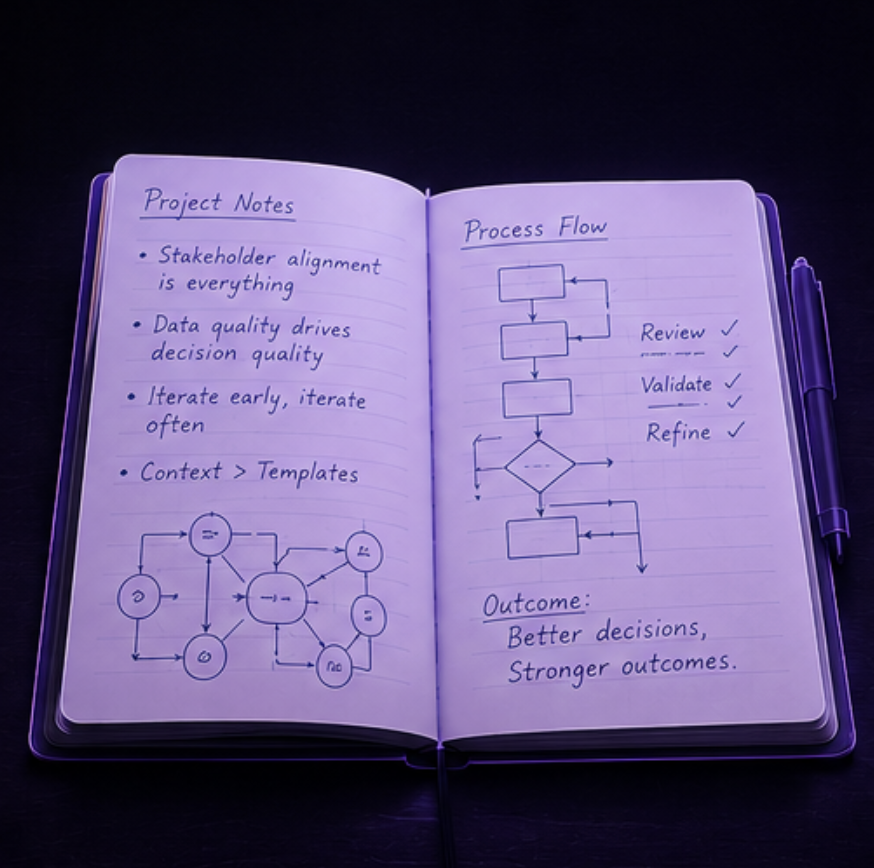 Project Notes
• Stakeholder alignment
is everything
• Data quality drives
decision quality
• Iterate early, iterate
often
• Context > Templates
Process Flow
Review ✓
✓
Validate ✓
✓
Refine ✓
Outcome:
Better decisions,
Stronger outcomes.